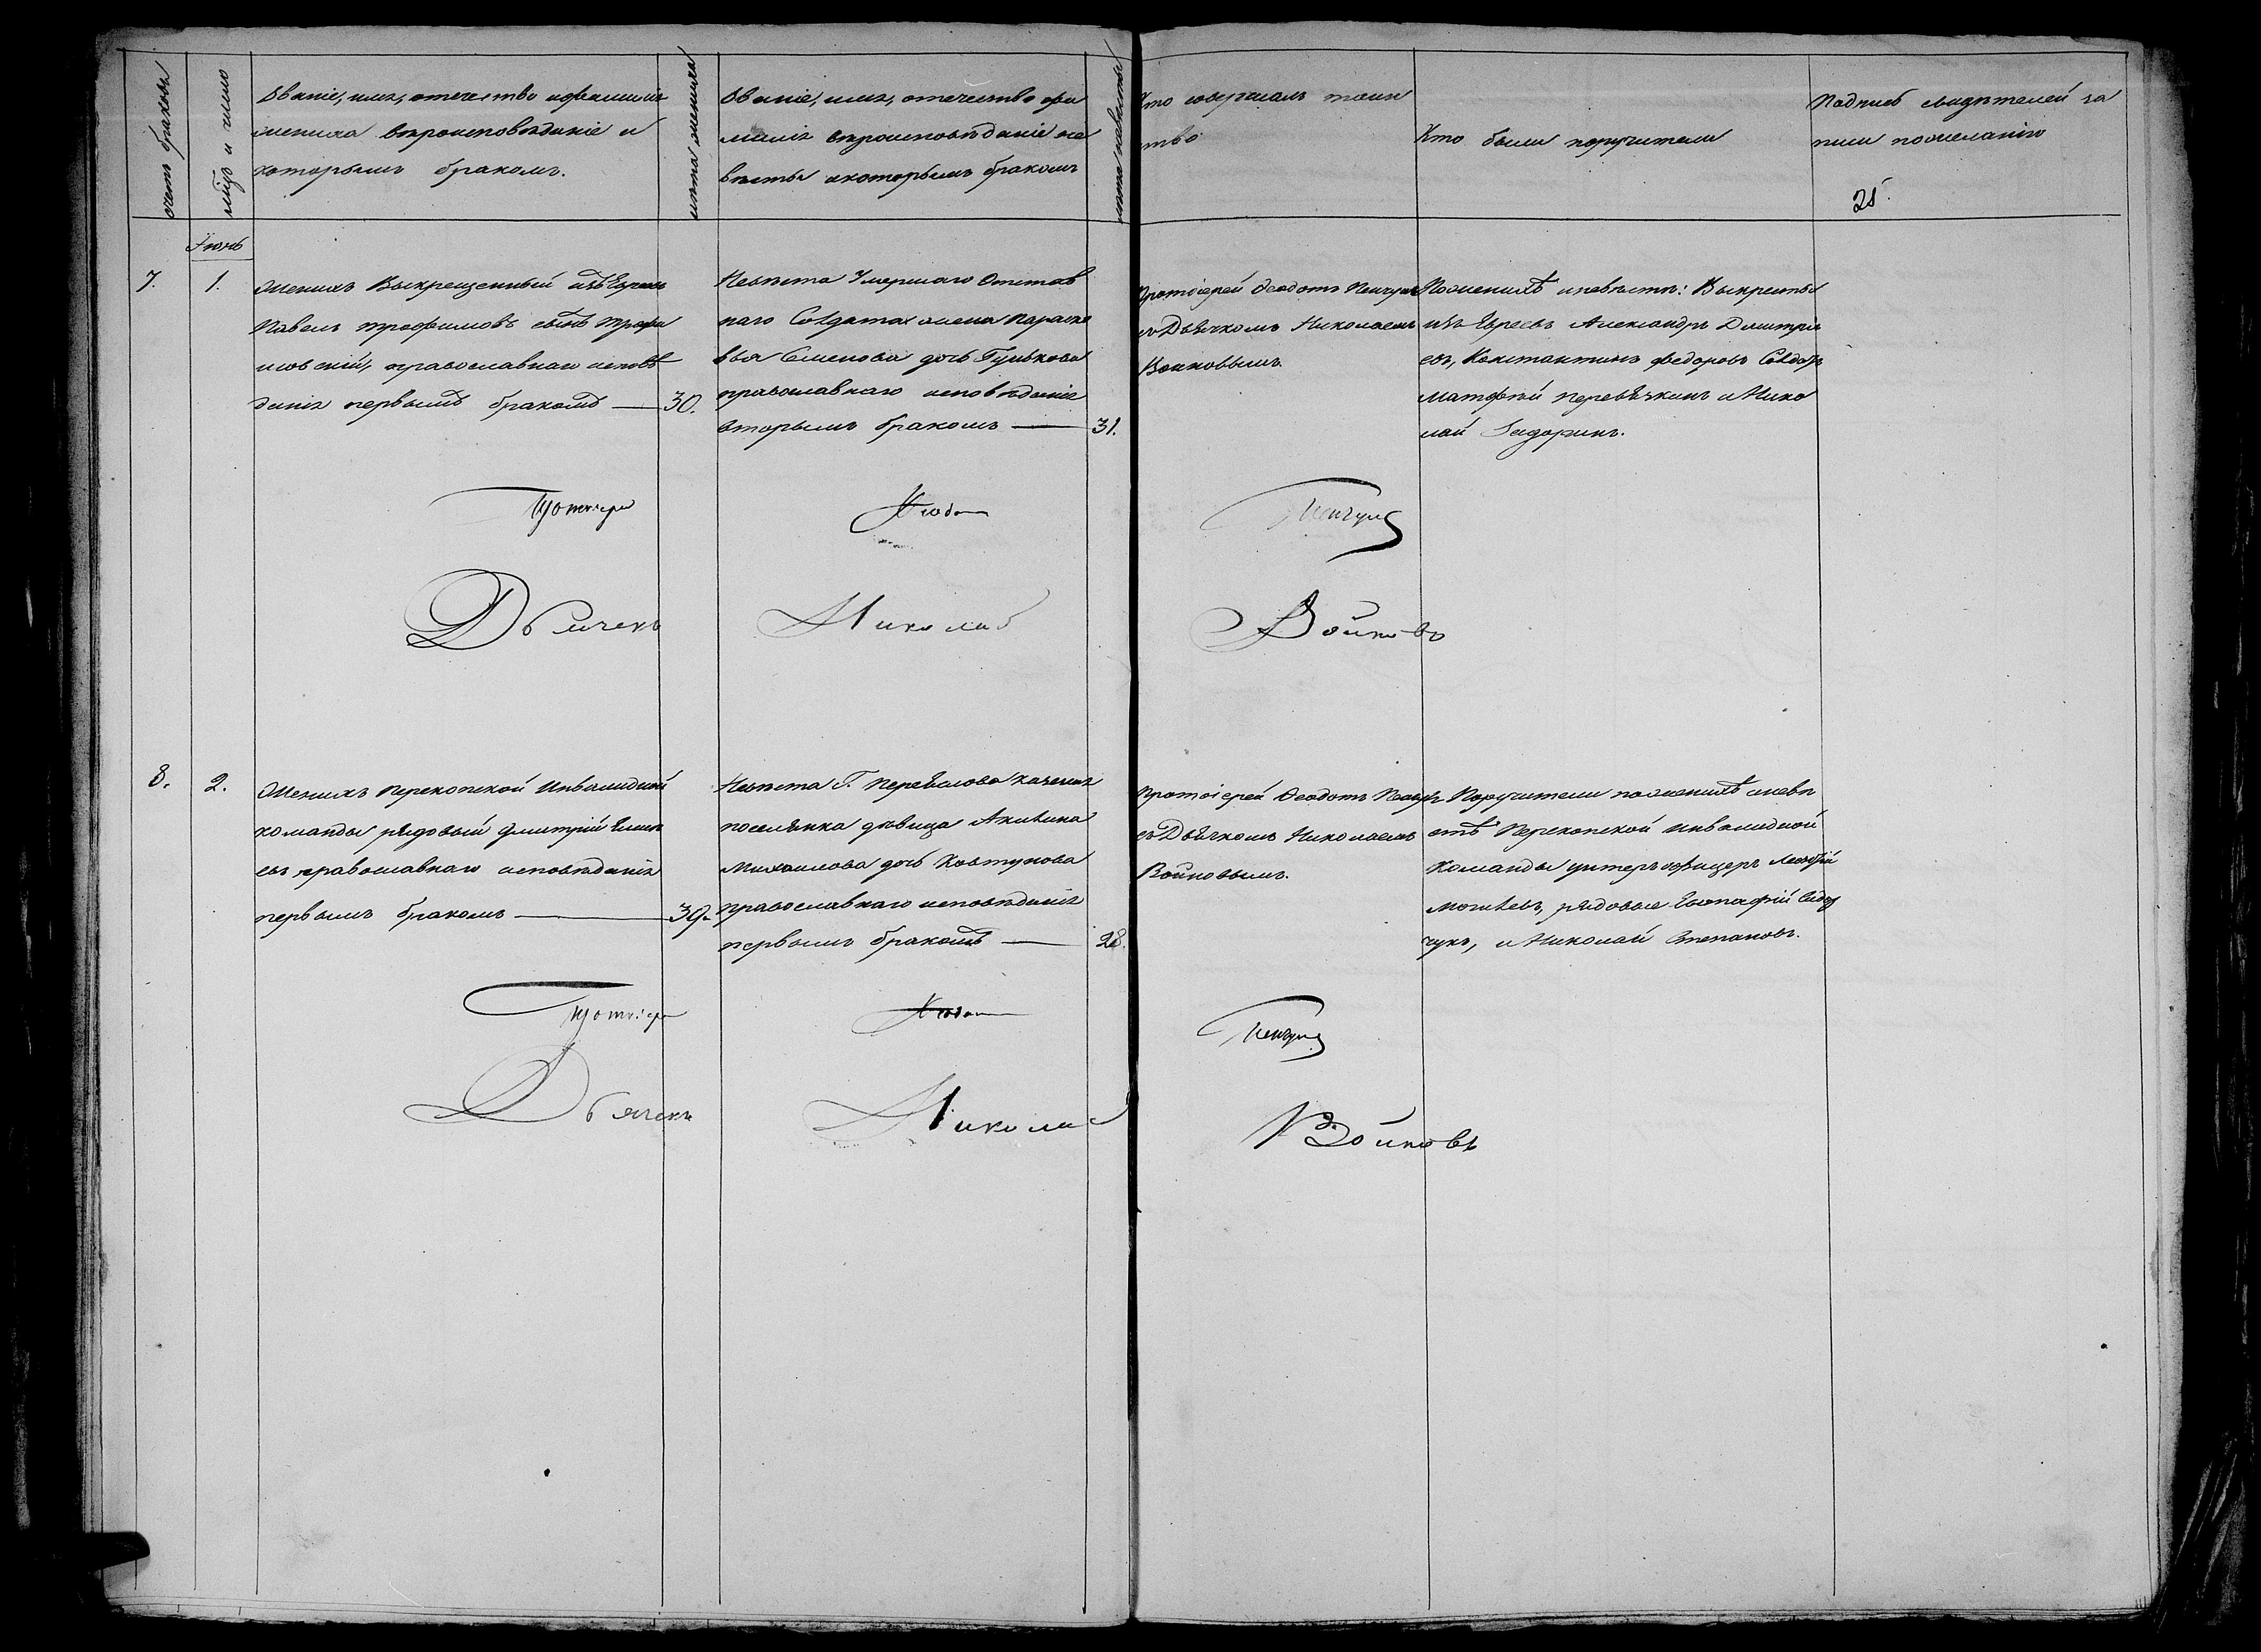 счетъ браковъ
мѣсяцъ и число
Званіе, имя, отечество и фамилія
жениха вѣроисповѣданіе и
которымъ бракомъ.
лѣта жениха
Званіе, имя, отечество фа
милія вѣроисповѣданіе не
вѣсты и которымъ бракомъ
лѣта невѣсты
Кто совершалъ таин
ство
Кто были поручители
Подпись свидѣтелей за
писи по желанію
25.
Іюнь
7.
1.
Женихъ Выкрещенный изъ Евреевъ
Павелъ Трофимовъ сынъ Трофи
мовскій, православнаго исповѣ
данія первымъ бракомъ — 30.
Невѣста Умершаго Отстав
наго Солдата жена Параске
вья Семенова дочь Гулькова
православнаго исповѣданія
вторымъ бракомъ — 31.
Протоіерей Ѳеодотъ
съ Дьячкомъ Николаемъ
Воиновымъ.
По женихѣ и невѣстѣ: Выкресты
изъ Евреевъ Александръ Дмитрі
евъ, Константинъ Федоровъ Солдатъ
Матфѣй Перевѣзкинъ и Нико
лай Сидоринъ.
Протоіерей Ѳеодотъ
Дьячекъ Николай Войновъ
8.
2.
Женихъ Перекопской Инвалидной
команды рядовый Дмитрій
евъ православнаго исповѣданія
первымъ бракомъ — 39.
Невѣста С. Перевалова казенная
поселянка дѣвица Акилина
Михаилова дочь Ковтунова
православнаго исповѣданія
первымъ бракомъ — 28.
Протоіерей Ѳеодотъ
съ Дьячкомъ Николаемъ
Войновымъ.
Поручители по женихѣ и невѣ
стѣ Перекопской инвалидной
Команды унтеръ офицеръ
Могилевъ, рядовые Евстафій
чукъ, и Николай Степановъ.
Протоіерей Ѳеодотъ
Дьячекъ Николай Войновъ